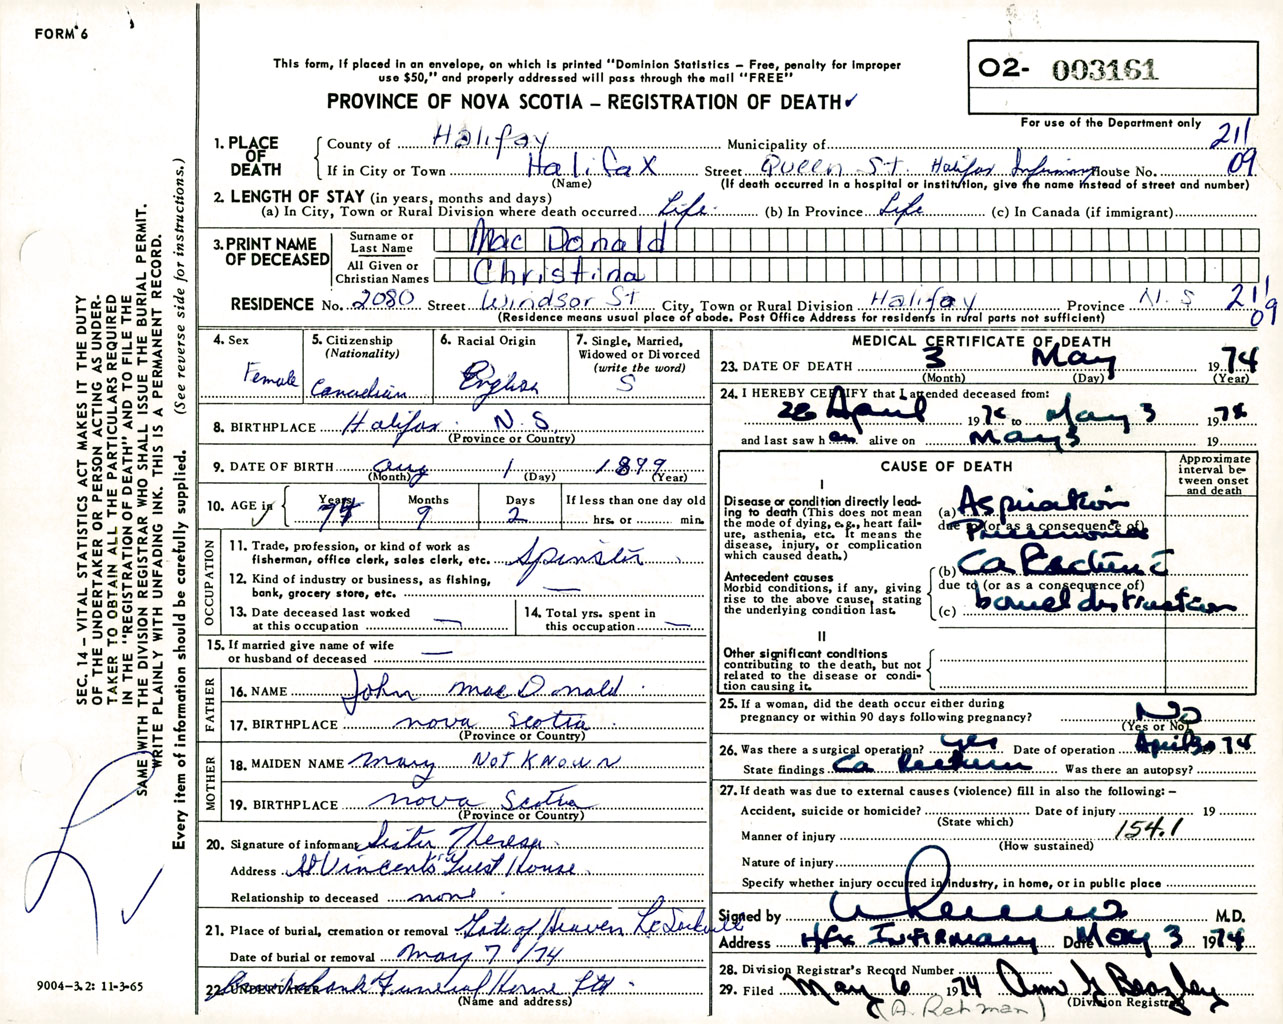 FORM 6
This form, if placed in an envelope, on which is printed "Dominion Statistics – Free, penalty for improper
use $50," and properly addressed will pass through the mail "FREE"
PROVINCE OF NOVA SCOTIA – REGISTRATION OF DEATH
O2- 003161
For use of the Department only
1. PLACE OF DEATH
County of Halifax Municipality of
211
If in City or Town Halifax Street Queen St. Halifax Infirmary House No.
09
(Name) (If death occurred in a hospital or institution, give the name instead of street and number)
2. LENGTH OF STAY (in years, months and days)
(a) In City, Town or Rural Division where death occurred Life (b) In Province Life (c) In Canada (if immigrant)
3. PRINT NAME OF DECEASED
Surname or Last Name Mac Donald
All Given or Christian Names Christina
RESIDENCE No. 2080 Street Windsor St City, Town or Rural Division Halifax Province N.S 211
09
(Residence means usual place of abode. Post Office Address for residents in rural parts not sufficient)
4. Sex Female
5. Citizenship (Nationality) Canadian
6. Racial Origin English
7. Single, Married, Widowed or Divorced (write the word) S
8. BIRTHPLACE Halifax N.S
(Province or Country)
9. DATE OF BIRTH Aug 1 1899
(Month) (Day) (Year)
10. AGE in Years 74 Months 9 Days 2 If less than one day old
hrs. or min.
OCCUPATION
11. Trade, profession, or kind of work as
fisherman, office clerk, sales clerk, etc. Spinster
12. Kind of industry or business, as fishing,
bank, grocery store, etc. —
13. Date deceased last worked
at this occupation —
14. Total yrs. spent in
this occupation —
15. If married give name of wife
or husband of deceased —
FATHER
16. NAME John MacDonald
17. BIRTHPLACE Nova Scotia
(Province or Country)
MOTHER
18. MAIDEN NAME Mary Not Known
19. BIRTHPLACE Nova Scotia
(Province or Country)
20. Signature of informant Sister Theresa
Address St Vincent's Guest House
Relationship to deceased none
21. Place of burial, cremation or removal Gate of Heaven Lr Sackville
Date of burial or removal May 7 /74
22. UNDERTAKER Funeral Home Ltd
(Name and address)
MEDICAL CERTIFICATE OF DEATH
23. DATE OF DEATH 3 May 1974
(Month) (Day) (Year)
24. I HEREBY CERTIFY that I attended deceased from:
28 April 1974 to May 3 1974
and last saw h er alive on May 3 19
CAUSE OF DEATH
Approximate interval between onset and death
I
Disease or condition directly lead-
ing to death (This does not mean
the mode of dying, e.g., heart fail-
ure, asthenia, etc. It means the
disease, injury, or complication
which caused death.)
(a) Aspiration
due to (or as a consequence of)
Pneumonia
Antecedent causes
Morbid conditions, if any, giving
rise to the above cause, stating
the underlying condition last.
(b) Ca Rectum c̄
due to (or as a consequence of)
(c) bowel obstruction
II
Other significant conditions
contributing to the death, but not
related to the disease or condi-
tion causing it.
25. If a woman, did the death occur either during
pregnancy or within 90 days following pregnancy? No
(Yes or No)
26. Was there a surgical operation? Yes Date of operation April 30 1974
State findings Ca Rectum Was there an autopsy?
27. If death was due to external causes (violence) fill in also the following: –
Accident, suicide or homicide? Date of injury 19
(State which)
Manner of injury 154.1
(How sustained)
Nature of injury
Specify whether injury occurred in industry, in home, or in public place
Signed by M.D.
Address Hfx Infirmary Date May 3 1974
28. Division Registrar's Record Number
29. Filed May 6 1974 Ann G Beazley
(Division Registrar)
(A. Rehman)
SEC. 14 – VITAL STATISTICS ACT MAKES IT THE DUTY
OF THE UNDERTAKER OR PERSON ACTING AS UNDER-
TAKER TO OBTAIN ALL THE PARTICULARS REQUIRED
IN THE "REGISTRATION OF DEATH" AND TO FILE THE
SAME WITH THE DIVISION REGISTRAR WHO SHALL ISSUE THE BURIAL PERMIT.
WRITE PLAINLY WITH UNFADING INK. THIS IS A PERMANENT RECORD.
Every item of information should be carefully supplied. (See reverse side for instructions.)
9004-3.2: 11-3-65